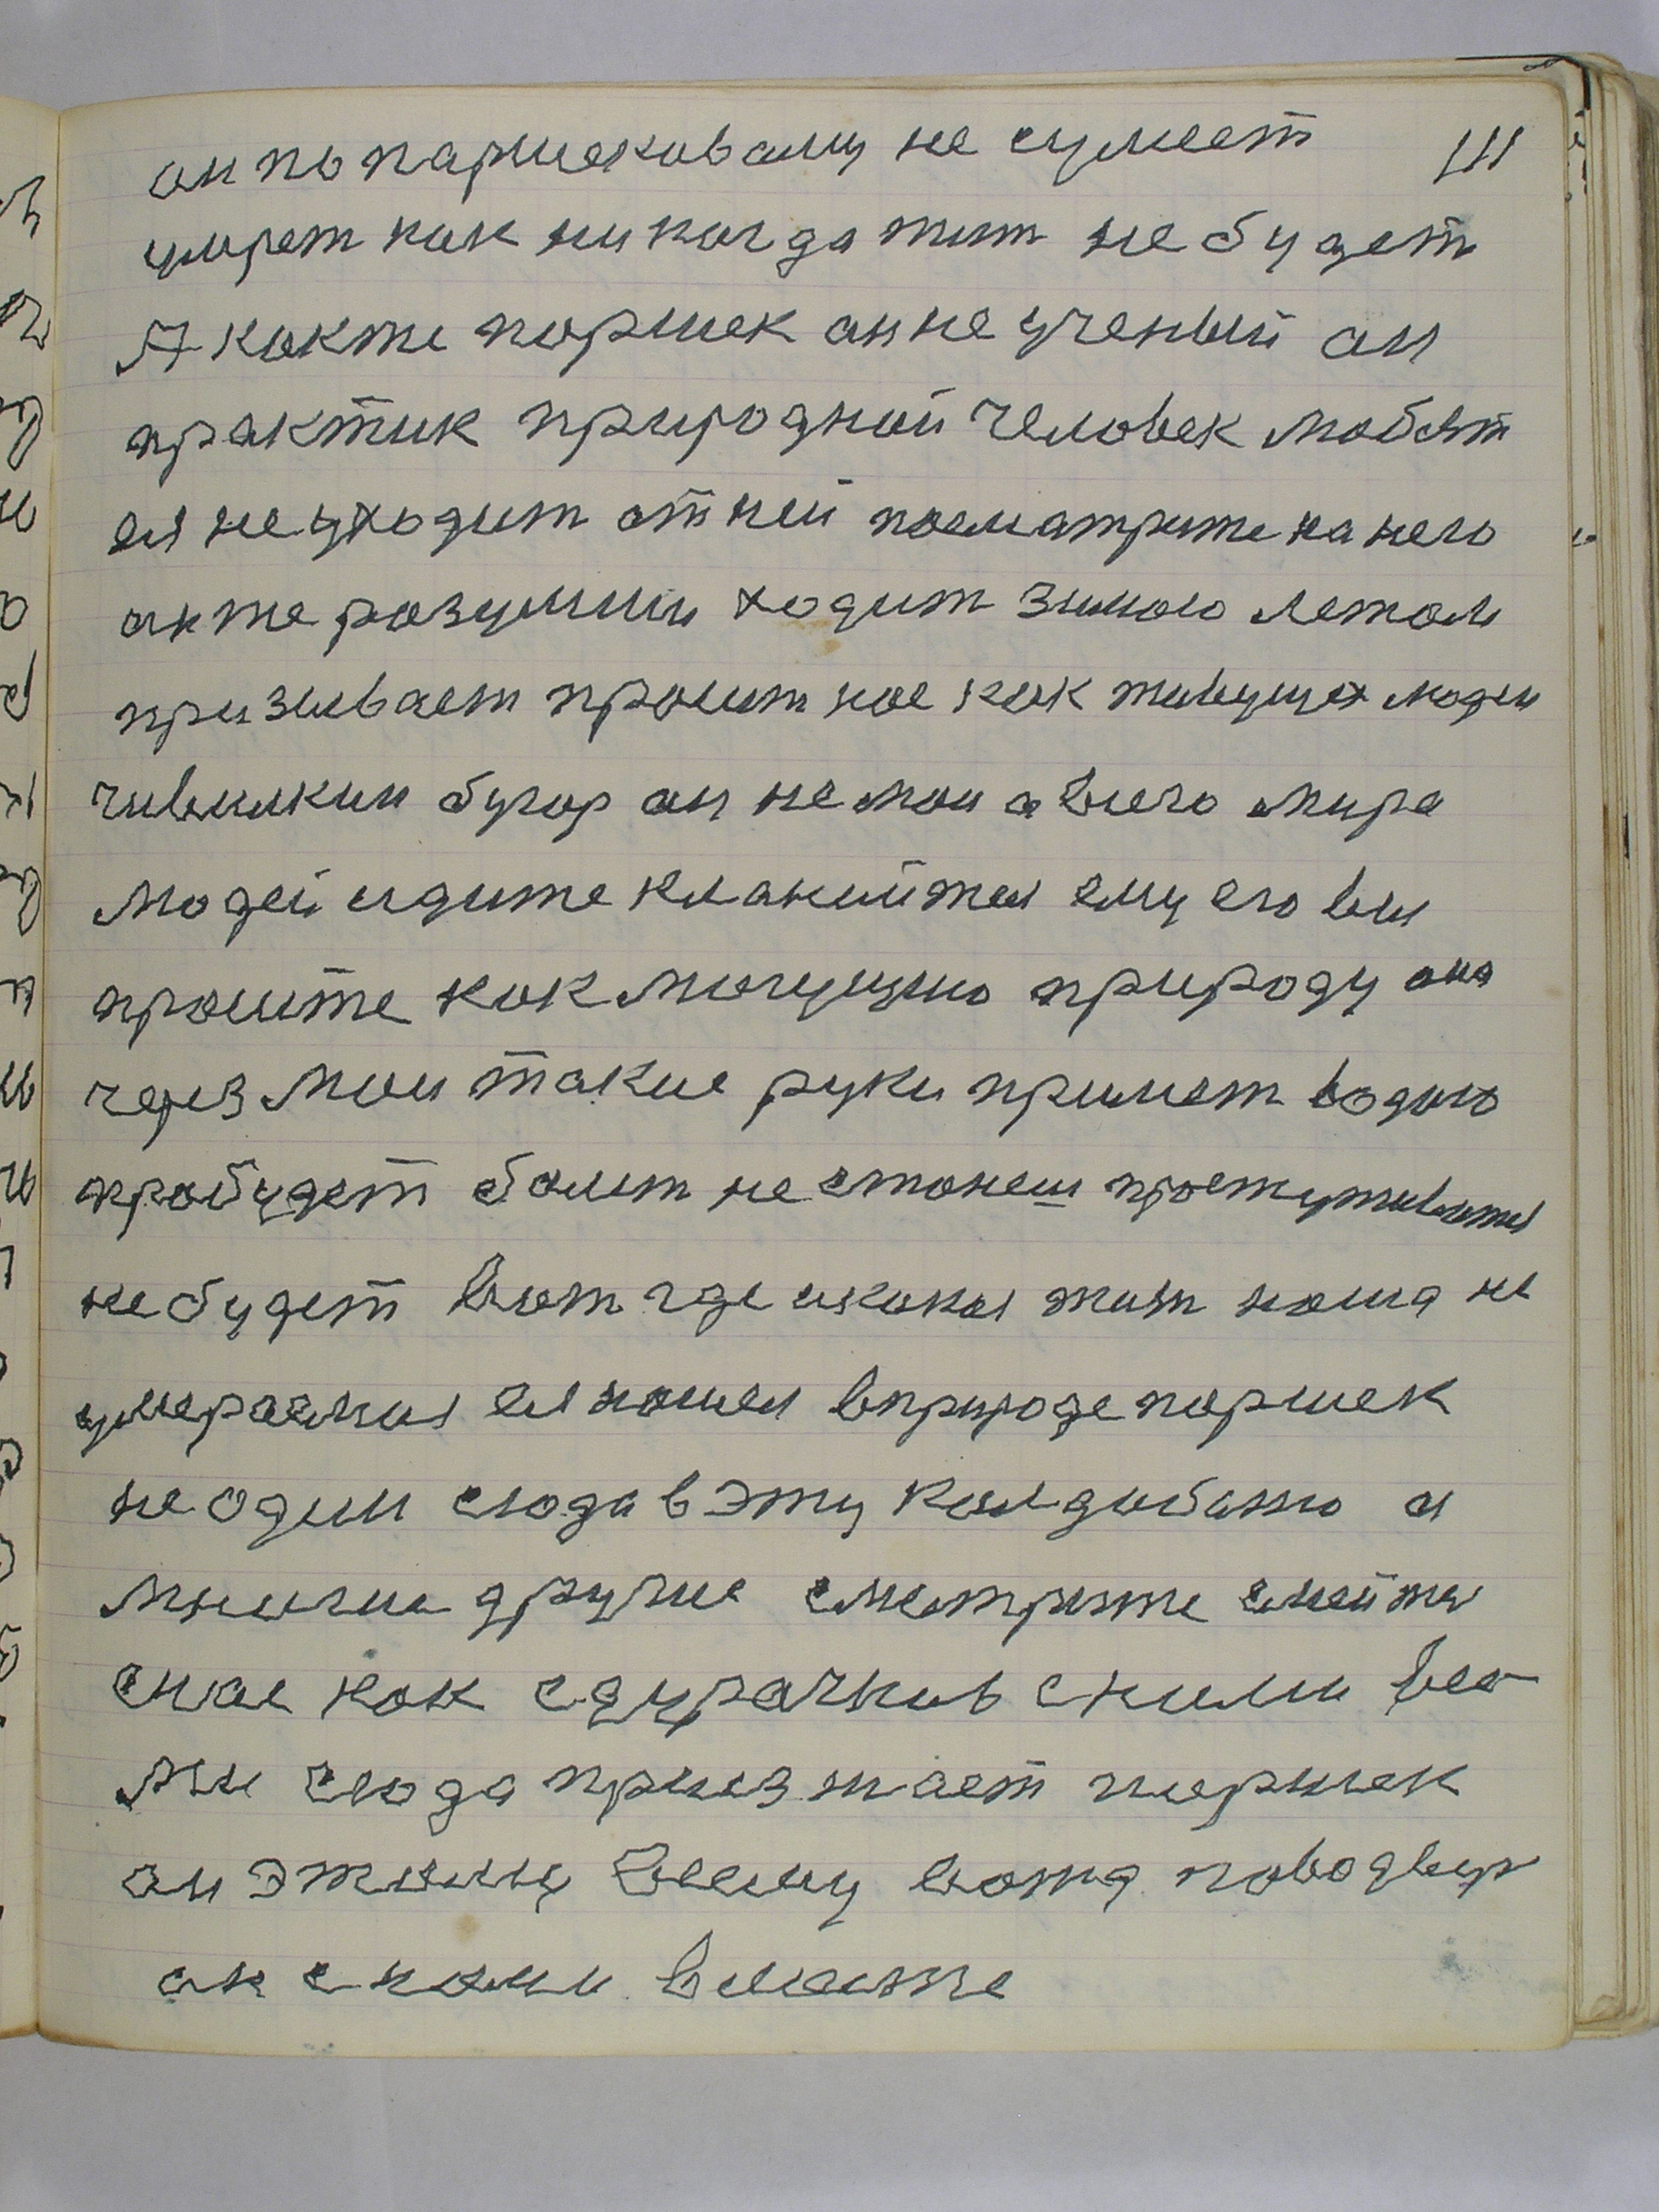 он по паршековаму не сумеет 111
умрет как никогда жит не будет
А как же паршек он не ученый он
практик природной человек любят
ея не уходит от ней посматрите на него
он же разумний ходит зимою летом
призивает просит нас как живущех людей
чивилкин бугор он не мои а всего мира
людей идите кланийтся ему его ви
просите как могущию природу она
через мои такие руки примет водою
пробудет болит не станеш простуживатся
не будет Вот где искокая жит наша не
умераемая ея нашел в природе паршек
не один сюда в эту калдибаню а
многие другие сматрите смейтся
снас как сдурачков сними всо
ми сюда приезжает паршек
он этаму всему вожд поводир
он снами вместе